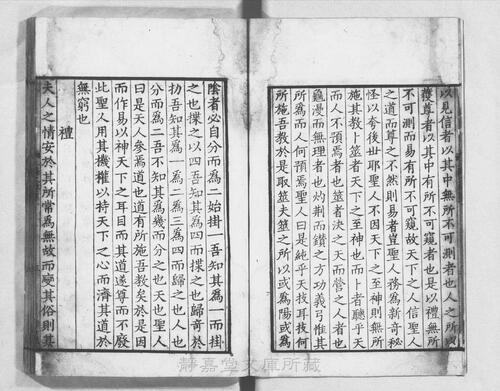 以見信者以其中無所不可測者也人之所以
獲尊者以其中有所不可窺者也是以禮無所
不可測而易有所不可窺故天下之人信聖人
之道而尊之不然則易者豈聖人務爲新奇秘
怪以夸後世耶聖人不因天下之至神則無所
施其教卜筮者天下之至神也而卜者聽乎天
而人不預焉者也筮者決之天而營之人者也
龜漫而無理者也灼荆而鑽之方功義弓惟其
所爲而人何預焉聖人曰是純乎天技耳技何
所施吾教於是取筮夫筮之所以或爲陽或爲
陰者必自分而爲二始掛一吾知其爲一而掛
之也揲之以四吾知其爲四而揲之也歸奇於
扐吾知其爲一爲二爲三爲四而歸之也人也
分而爲二吾不知其爲幾而分之也天也聖人
曰是天人參焉道也道有所施吾教矣於是因
而作易以神天下之耳目而其道遂尊而不廢
此聖人用其機權以持天下之心而濟其道於
無窮也
禮
夫人之情安於其所常爲無故而變其俗則其
静嘉堂文庫所蔵